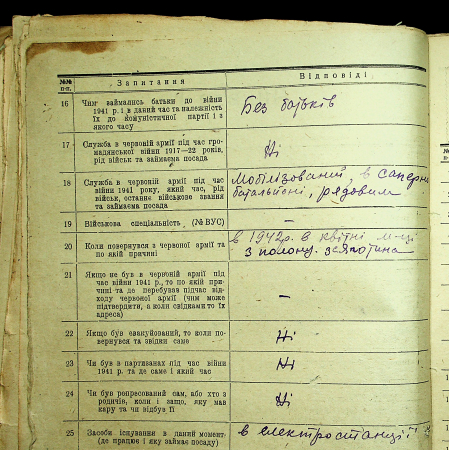 №№ п-п.
Запитання
Відповіді
16
Чим займались батьки до війни
1941 р. і в даний час та належність
їх до комуністичної партії і з
якого часу
Без батьків
17
Служба в червоній армії під час гро-
мадянської війни 1917—22 років,
рід військ та займаєма посада
Ні
18
Служба в червоній армії під час
війни 1941 року, який час, рід
військ, останнє військове звання
та займаєма посада
Мобілізований, в саперн
батальйоні, рядовим
19
Військова спеціальність (№ ВУС)
—
20
Коли повернувся з червоної армії та
по якій причині
в 1942 р. в квітні м-ці
з полону.
21
Якщо не був в червоній армії під
час війни 1941 р., то по якій при-
чині та де перебував підчас від-
ходу червоної армії (чим може
підтвердити, а коли свідками то їх
адреса)
—
22
Якщо був евакуйований, то коли по-
вернувся та звідки саме
Ні
23
Чи був в партизанах під час війни
1941 р. та де саме і який час
Ні
24
Чи був репресований сам, або хто з
родичів, коли і защо, яку мав
кару та чи відбув її
Ні
25
Засоби існування в даний момент
(де працює і яку займає посаду)
в електростанції